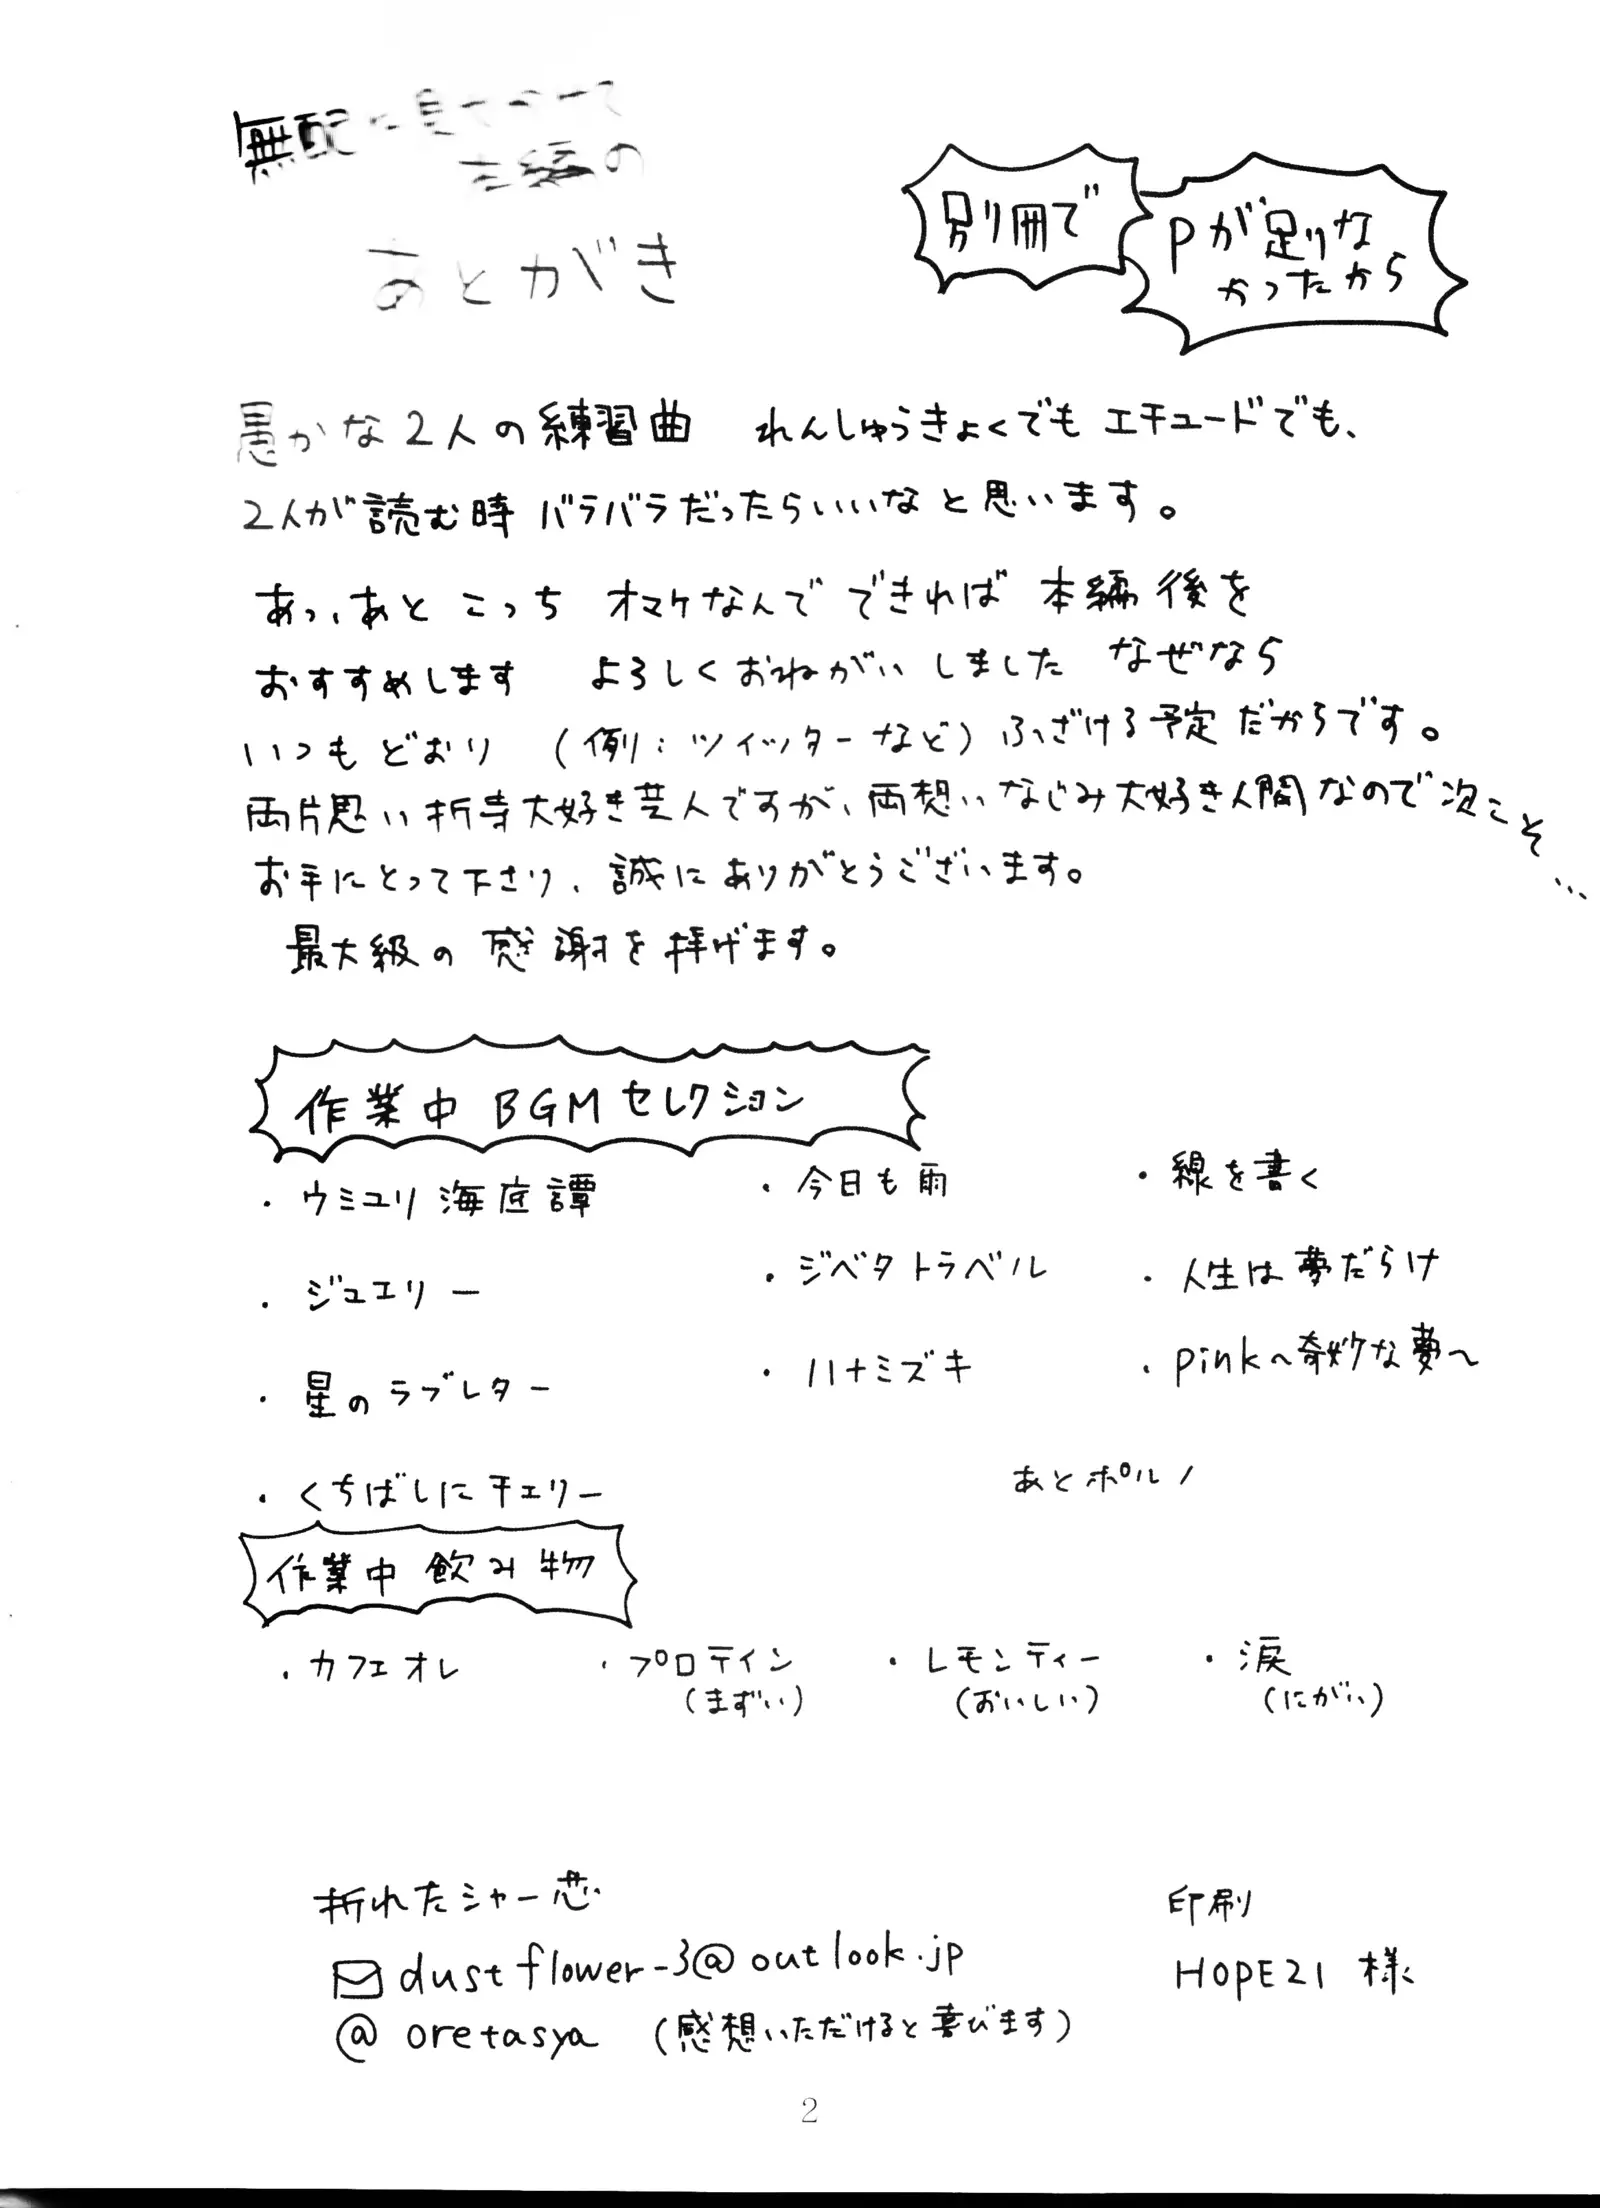 無配に見せかけて
本編の
あとがき
別冊で
Pが足りな
かったから
愚かな2人の練習曲 れんしゅうきょくでもエチュードでも、
2人が読む時バラバラだったらいいなと思います。
あっ、あと こっち オマケなんで できれば 本編後を
おすすめします よろしくおねがいしました なぜなら
いつもどおり (例:ツイッターなど) ふざける予定だからです。
両片思い折寺大好き芸人ですが、両想いなじみ大好き人間なので次こそ…
お手にとって下さり、誠にありがとうございます。
最大級の感謝を捧げます。
作業中BGMセレクション
・ウミユリ海底譚
・今日も雨
・線を書く
・ジュエリー
・ジベタトラベル
・人生は夢だらけ
・星のラブレター
・ハナミズキ
・pink〜奇妙な夢〜
・くちばしにチェリー
あとポルノ
作業中飲み物
・カフェオレ ・プロテイン ・レモンティー ・涙
(まずい) (おいしい) (にがい)
折れたシャー芯
dustflower-3@outlook.jp
@oretasya (感想いただけると喜びます)
印刷
HOPE21 様
2